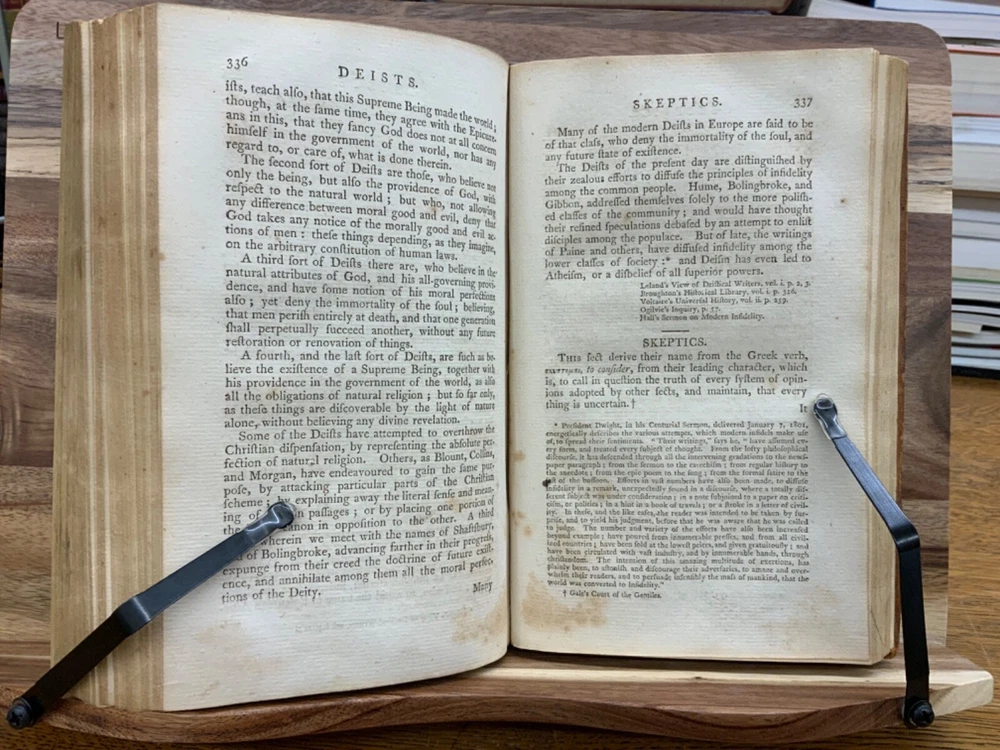 336
DEISTS.
iſts, teach alſo, that this Supreme Being made the world;
though, at the same time, they agree with the Epicure-
ans in this, that they fancy God does not at all concern
himſelf in the government of the world, nor has any
regard to, or care of, what is done therein.
The ſecond ſort of Deiſts are thoſe, who believe not
only the being, but alſo the providence of God, with
reſpect to the natural world; but who, not allowing
any difference between moral good and evil, deny that
God takes any notice of the morally good and evil ac-
tions of men: theſe things depending, as they imagine,
on the arbitrary conſtitution of human laws.
A third ſort of Deiſts there are, who believe in the
natural attributes of God, and his all-governing provi-
dence, and have ſome notion of his moral perfections
alſo; yet deny the immortality of the ſoul; believing,
that men periſh entirely at death, and that one generation
ſhall perpetually ſucceed another, without any future
reſtoration or renovation of things.
A fourth, and the laſt ſort of Deiſts, are ſuch as be-
lieve the exiſtence of a Supreme Being, together with
his providence in the government of the world, as alſo
all the obligations of natural religion; but ſo far only,
as theſe things are diſcoverable by the light of nature
alone, without believing any divine revelation.
Some of the Deiſts have attempted to overthrow the
Chriſtian diſpenſation, by repreſenting the abſolute per-
fection of natural religion. Others, as Blount, Collins,
and Morgan, have endeavoured to gain the ſame pur-
poſe, by attacking particular parts of the Chriſtian
ſcheme; by explaining away the literal ſenſe and mean-
ing of paſſages; or by placing one portion of
the in oppoſition to the other. A third
wherein we meet with the names of Shaftſbury,
of Bolingbroke, advancing farther in their progreſs,
expunge from their creed the doctrine of future exiſt-
ence, and annihilate among them all the moral perfec-
tions of the Deity.
Many
SKEPTICS.
337
Many of the modern Deiſts in Europe are ſaid to be
of that claſs, who deny the immortality of the ſoul, and
any future ſtate of exiſtence.
The Deiſts of the preſent day are diſtinguiſhed by
their zealous efforts to diffuſe the principles of infidelity
among the common people. Hume, Bolingbroke, and
Gibbon, addreſſed themſelves ſolely to the more poliſh-
ed claſſes of the community; and would have thought
their refined ſpeculations debaſed by an attempt to enliſt
diſciples among the populace. But of late, the writings
of Paine and others, have diffuſed infidelity among the
lower claſſes of ſociety;* and Deiſm has even led to
Atheiſm, or a diſbelief of all ſuperior powers.
Leland's View of Deiſtical Writers, vol. i. p. 2, 3.
Broughton's Hiſtorical Library, vol. i. p. 316.
Voltaire's Univerſal Hiſtory, vol. ii. p. 259.
Ogilvie's Inquiry, p. 57.
Hall's Sermon on Modern Infidelity.
SKEPTICS.
THIS ſect derive their name from the Greek verb,
to conſider, from their leading character, which
is, to call in queſtion the truth of every ſyſtem of opin-
ions adopted by other ſects, and maintain, that every
thing is uncertain.†
It
* Preſident Dwight, in his Centurial Sermon, delivered January 7, 1801,
energetically deſcribes the various attempts, which modern infidels make uſe
of, to ſpread their ſentiments. "Their writings," ſays he, "have aſſumed ev-
ery form, and treated every ſubject of thought. From the lofty philoſophical
diſcourſe, it has deſcended through all the intervening gradations to the newſ-
paper paragraph; from the ſermon to the catechiſm; from regular hiſtory to
the anecdote; from the epic poem to the ſong; from the formal ſatire to the
jeſt of the buffoon. Efforts in vaſt numbers have alſo been made, to diffuſe
infidelity in a remark, unexpectedly found in a diſcourſe, where a totally dif-
ferent ſubject was under conſideration; in a note ſubjoined to a paper on criti-
ciſm, or politics; in a hint in a book of travels; or a ſtroke in a letter of civil-
ity. In theſe, and the like caſes, the reader was intended to be taken by ſur-
priſe, and to yield his judgment, before that he was aware that he was called
to judge. The number and variety of the efforts have alſo been increaſed
beyond example; have poured from innumerable preſſes, and from all civil-
ized countries; have been ſold at the loweſt prices, and given gratuitouſly; and
have been circulated with vaſt induſtry, and by innumerable hands, through
chriſtendom. The intenſion of this amazing multitude of exertions, has
plainly been, to aſtoniſh and diſcourage their adverſaries, to amaze and over-
whelm their readers, and to perſuade inſenſibly the maſs of mankind, that the
world was converted to Infidelity."
† Gale's Court of the Gentiles.